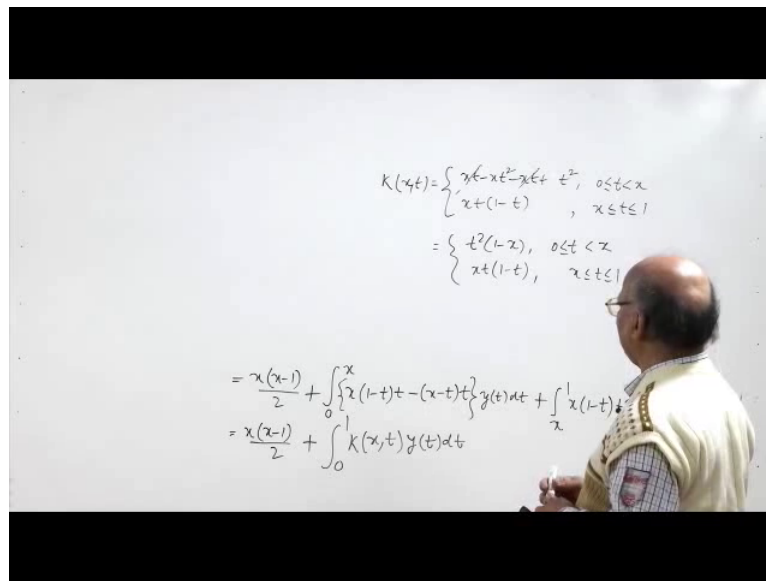 K(x,t) = { xt - xt² - xt + t², 0≤t<x
xt(1-t), x≤t≤1
= { t²(1-x), 0≤t<x
xt(1-t), x≤t≤1
= x(x-1)/2 + ∫₀ˣ {x(1-t)t - (x-t)t} y(t) dt + ∫ₓ¹ x(1-t)t
= x(x-1)/2 + ∫₀¹ K(x,t) y(t) dt